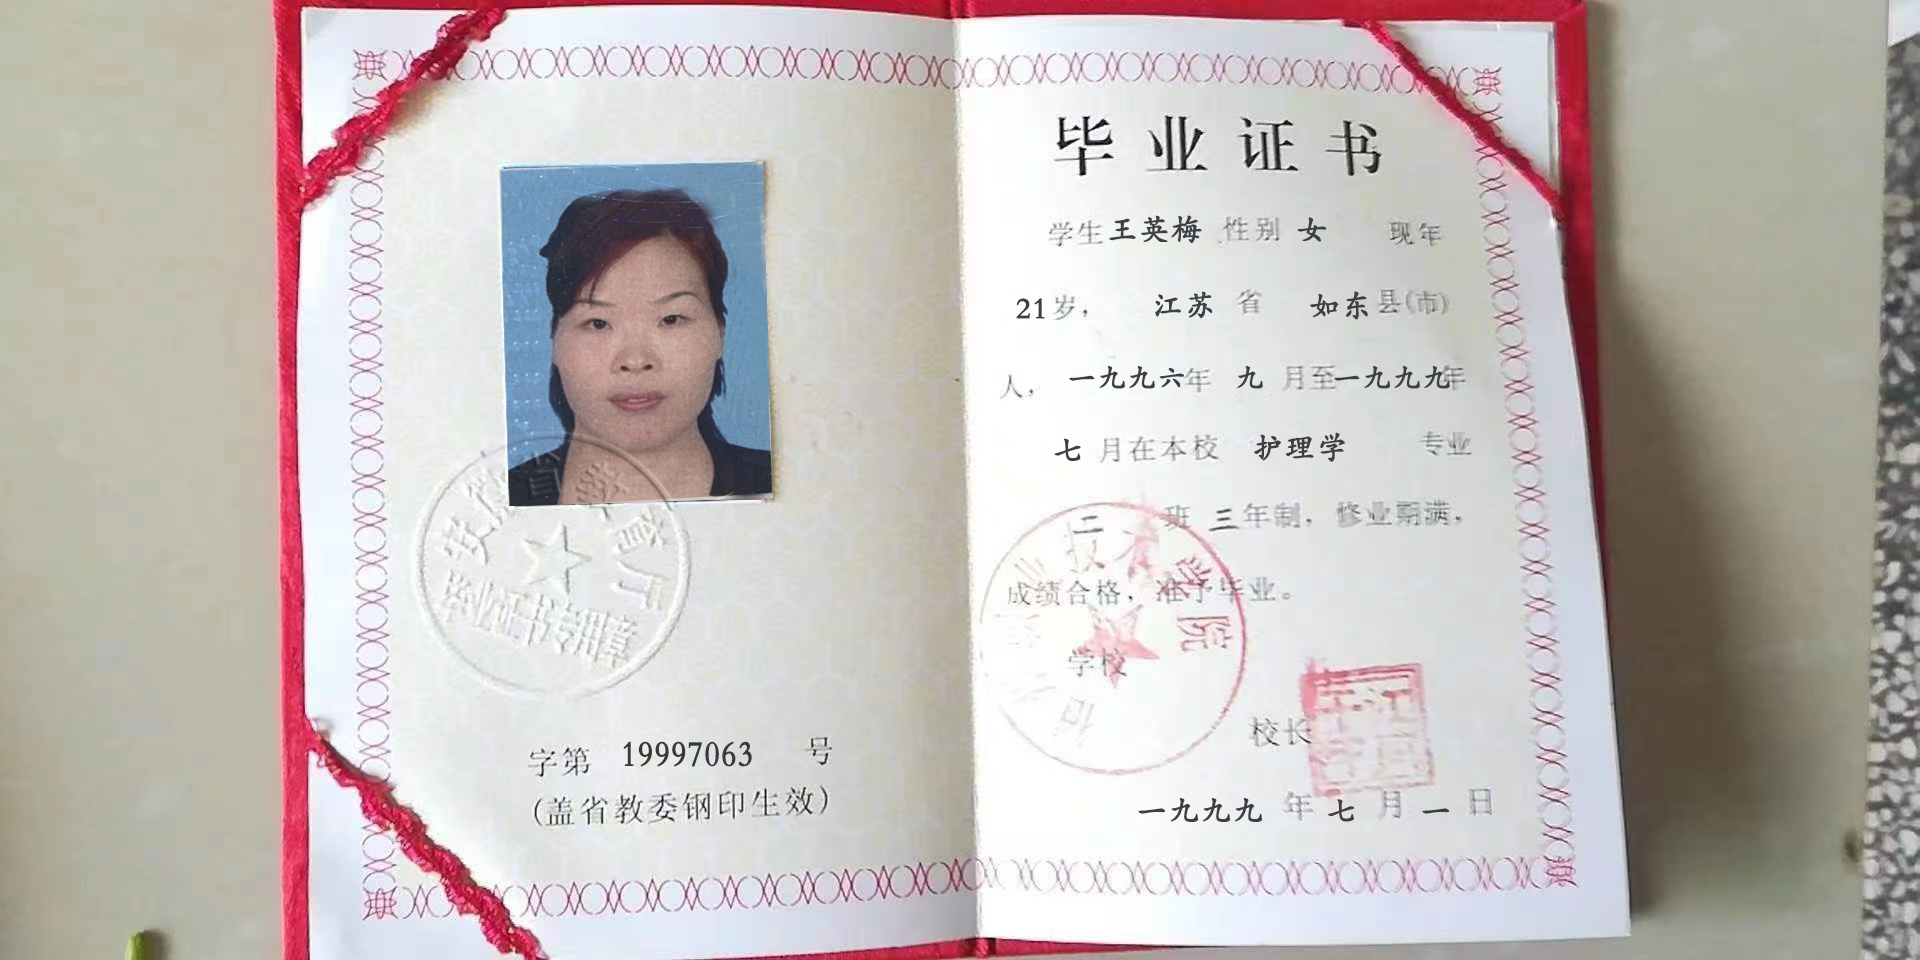 安徽省教育厅
毕业证书专用章
字第 19997063 号
(盖省教委钢印生效)
毕业证书
学生王英梅 性别 女 现年
21岁, 江苏 省 如东县(市)
人, 一九九六年 九 月至一九九九年
七 月在本校 护理学 专业
二 班 三年制, 修业期满,
成绩合格, 准予毕业。
学校
技术学院
校长
一九九九 年 七 月 一 日